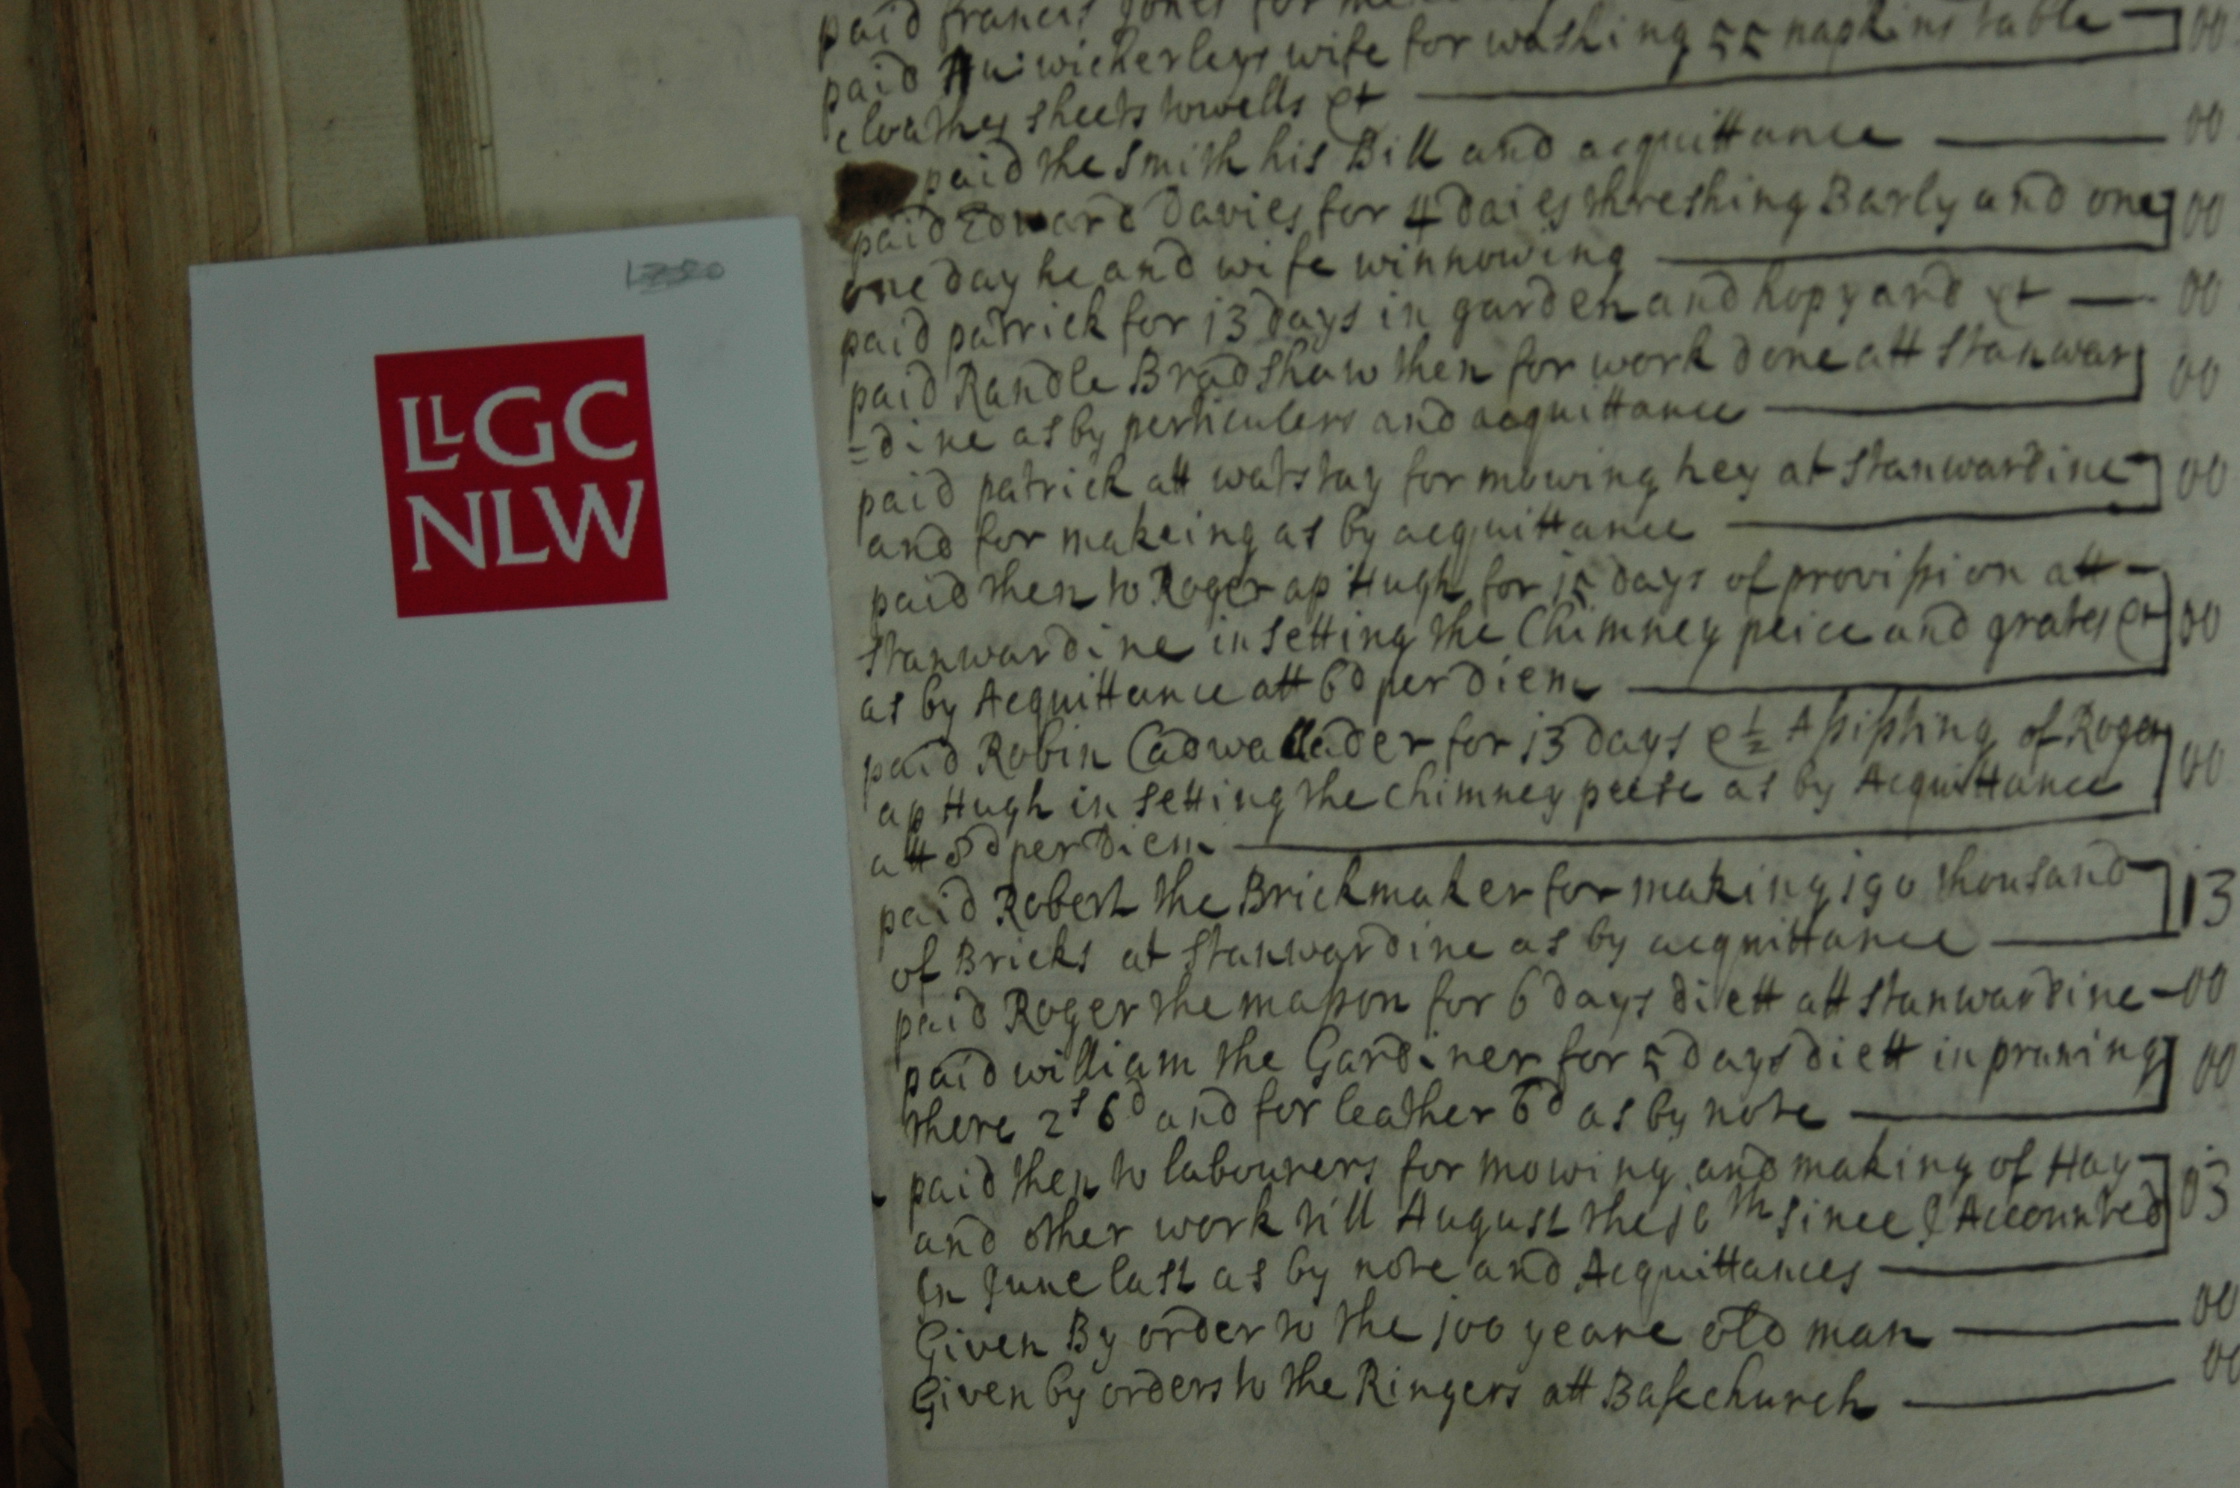 paid francis Jones for
paid Hu: wicherleys wife for washing 55 napkins table 00
cloathes sheets towells et
paid the Smith his Bill and acquittance 00
paid Edward Davies for 4 daies threshing Barly and one 00
one day he and wife winnowing
paid patrick for 13 days in garden and hopyard et 00
paid Randle Bradshaw then for work done att Stanwar 00
=dine as by perticulers and acquittance
paid patrick att watstay for mowing hey at Stanwardine 00
and for makeing as by acquittance
paid then to Roger ap Hugh for 15 days of provission att 00
Stanwardine in setting the Chimney peice and grates et
as by Acquittance att 6d per diem
paid Robin Cadwallader for 13 days e ½ Assissting of Roger 00
ap Hugh in setting the chimney peese as by Acquittance
att 8d per diem
paid Robert the Brickmaker for making 190 thousand 13
of Bricks at Stanwardine as by acquittance
paid Roger the masson for 6 days diett att Stanwardine 00
paid william the Gardiner for 5 days diett in pruning 00
there 2s 6d and for leather 6d as by note
paid then to labourers for mowing and making of Hay 03
and other work till August the 16th since I Accounted
In June last as by note and Acquittances
Given By order to the 100 yeare old man 00
Given by orders to the Ringers att Baschurch 00
LLGC
NLW